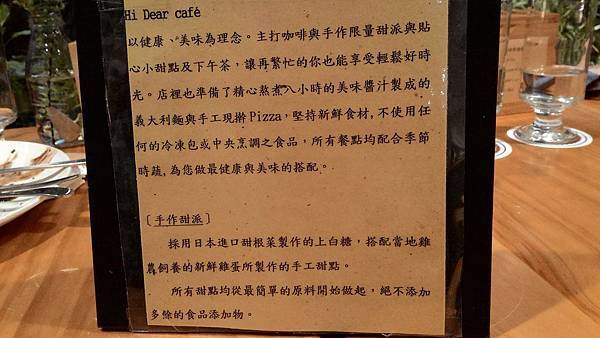 Hi Dear café
以健康、美味為理念。主打咖啡與手作限量甜派與貼
心小甜點及下午茶，讓再繁忙的你也能享受輕鬆好時
光。店裡也準備了精心熬煮八小時的美味醬汁製成的
義大利麵與手工現擀Pizza，堅持新鮮食材,不使用任
何的冷凍包或中央烹調之食品，所有餐點均配合季節
時蔬,為您做最健康與美味的搭配。
〔手作甜派〕
採用日本進口甜根菜製作的上白糖，搭配當地雞
農飼養的新鮮雞蛋所製作的手工甜點。
所有甜點均從最簡單的原料開始做起，絕不添加
多餘的食品添加物。